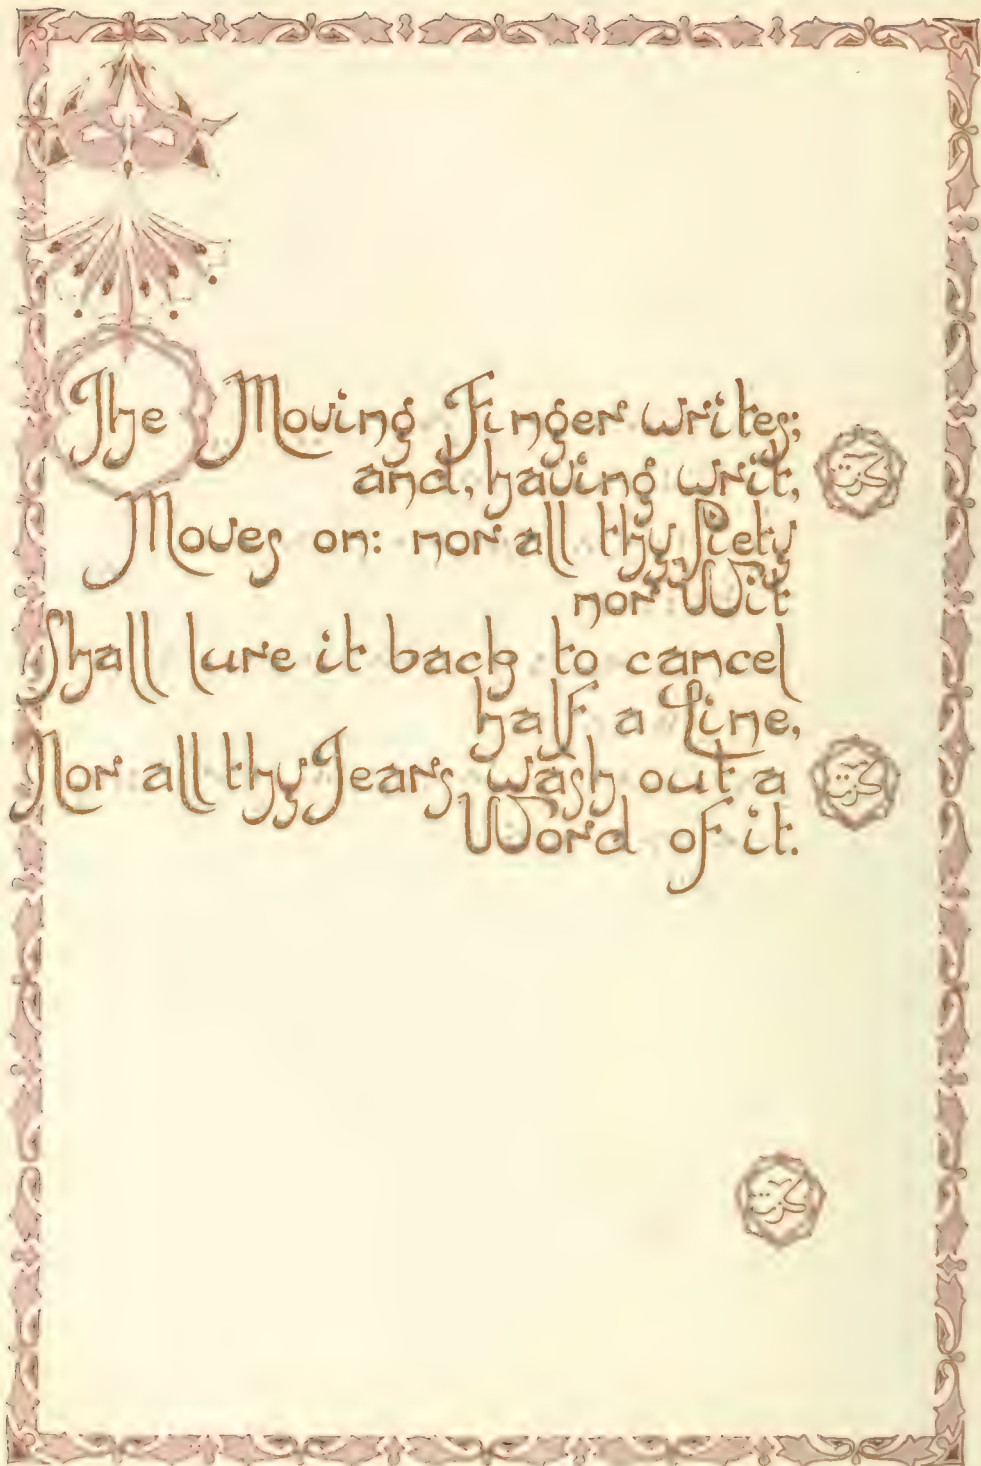 The Moving Finger writes;
and, having writ,
Moves on: nor all thy Piety
nor Wit
Shall lure it back to cancel
half a Line,
Nor all thy Tears wash out a
Word of it.